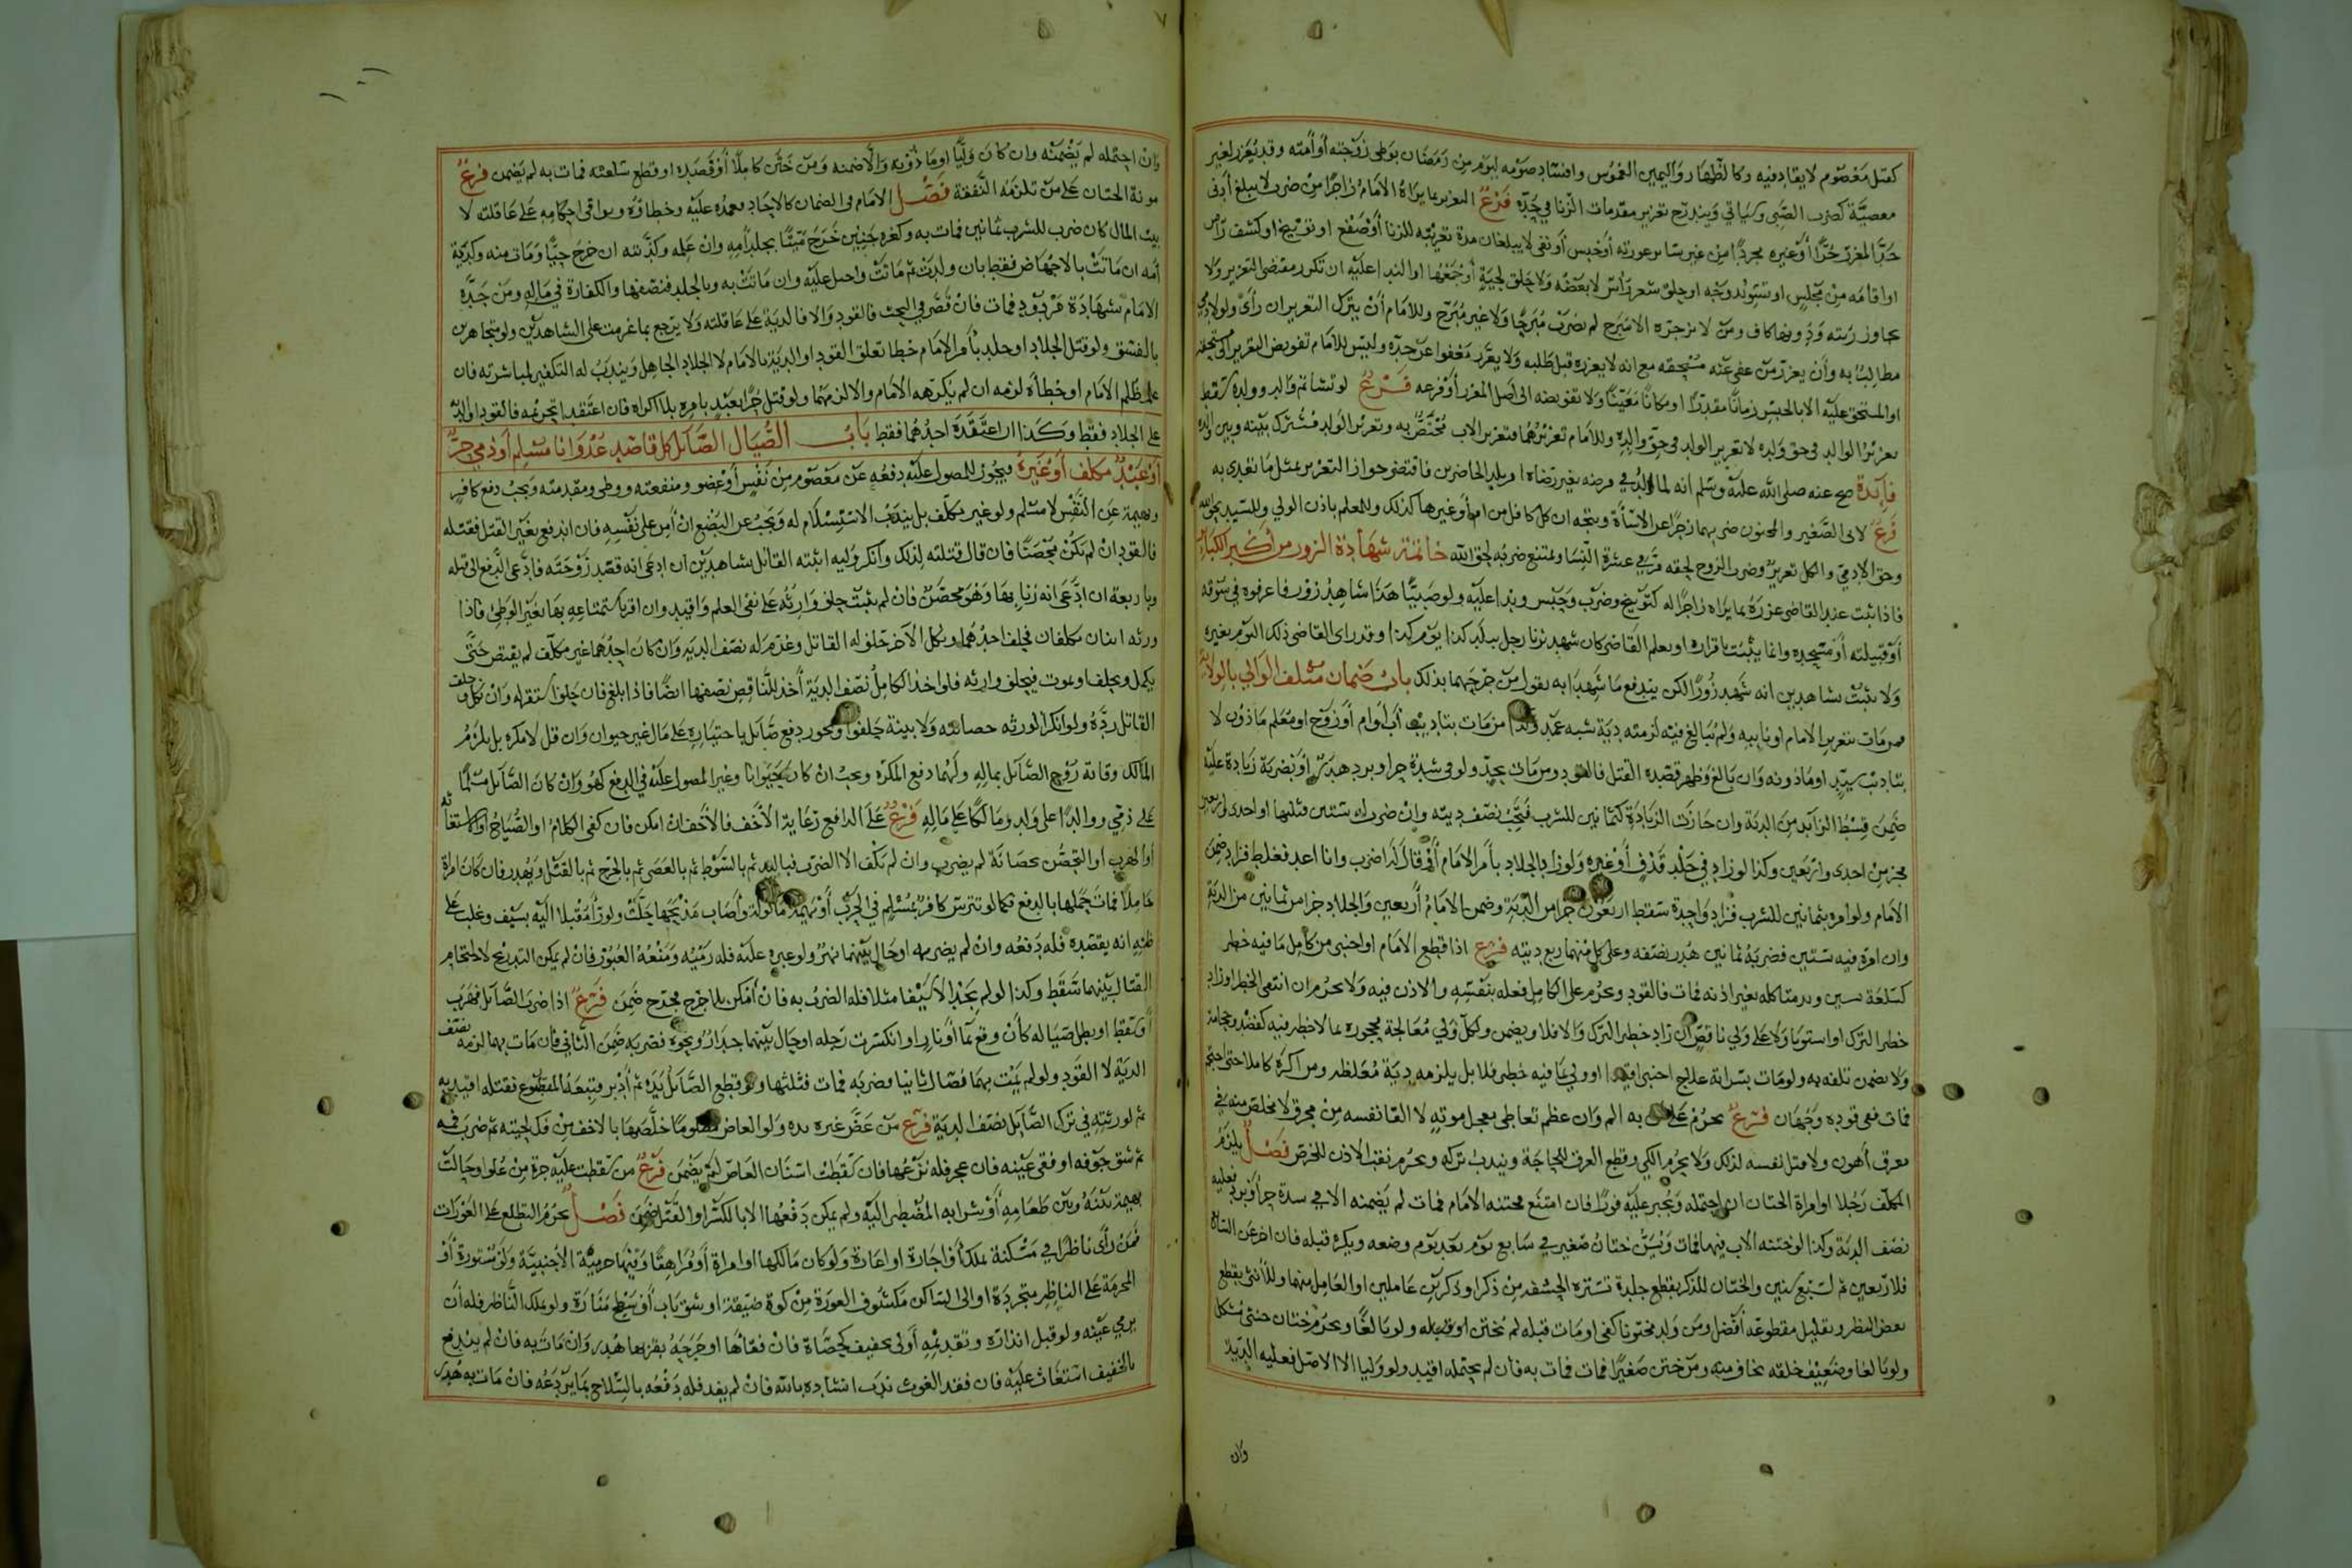 كقتل معصوم لا يقاد فيه وكالظهار واليمين الغموس وافساد صومه ليوم من رمضان بوطئ زوجته أو أمته وقد يعزر لغير
معصية كضرب الصبي وكياتي ويندرج تعزير مقدمات الزنا في حده فرع التعزير بما يراه الامام زاجرا من ضرب لا يبلغ أدنى
حد المعزر حرا أو غيره مجردا من غير ساتر عورته أو حبس أو نفي لا يبلغان مدة تغريبه للزنا أو صفع او توبيخ او كشف راس
او اقامه من مجلس او تسويد وجه او حلق شعر رأس لا بعضه ولا حلق لحية أو جمعها او الندا عليه ان تكرر مقتضى التعزير ولا
يجاوز رتبته ودونها كاف ومن لا يزجره الا مبرح لم يضرب مبرحا ولا غير مبرح وللامام أن يترك التعزير ان رأى ولو لآدمي
مطالبا به وأن يعزر من عفى عنه مستحقه مع انه لا يعزره قبل طلبه ولا يعزر معفوا عن حده وليس للامام تفويض التعزير الى مستحقه
او المستحق عليه الا بالحبس زمانا مقدرا او مكانا معينا ولا تفويضه الى اصل المعزر أو فرعه فرع لو تشاتم والد وولده سقط
تعزير الوالد في حق ولده لا تعزير الولد في حق والده وللامام تعزيرهما فتعزير الاب مختص به وتعزير الولد مشترك بينه وبين والده
فائدة صح عنه صلى الله عليه وسلم انه لما لد في مرضه بغير رضاه امر بلد الحاضرين فاقتضى جواز التعزير بمثل ما تعدى به
فرع لابي الصغير والمجنون ضربهما زجرا عن الاساءة ويتجه ان كل كافل من ام أو غيرها كذلك وللمعلم باذن الولي وللسيد بحق الله
وحق الادمي والكل تعزير وضرب الزوج لحقه مر في عشرة النسا ويمتنع ضربه لحق الله خاتمة شهادة الزور من أكبر الكبائر
فاذا ثبت عند القاضي عزره بما يراه زاجرا له كتوبيخ وضرب وحبس وندا عليه ولو صبيا هذا شاهد زور فاعرفوه في سوقه
أو قبيلته أو مسجده وانما يثبت باقراره او بعلم القاضي كان شهد بزنا رجل ببلد كذا يوم كذا وقد راى القاضي ذلك اليوم بغيره
ولا يثبت بشاهدين انه شهد زورا لكن يندفع ما شهدا به بقول من جرحهما بذلك باب ضمان متلف الوالي بالولاية
فمن مات بتعزير الامام او نايبه ولم يبالغ فيه لزمته دية شبه عمد وكذا من مات بتاديب أب أو ام أو زوج او معلم ماذون لا
بتاديب سيد او ماذونه وان بالغ وظهر قصده القتل فالقود ومن مات بحد ولو في شدة حر او برد هدر او بضربة زيادة عليه
ضمن قسط الزائد من الدية وان جازت الزيادة كثمانين للشرب فتجب نصف ديته وان ضرب ستين فثلثها او احدى واربعين
فجزء من احدى واربعين وكذا لو زاد في جلد قذف أو غيره ولو زاد الجلاد بأمر الامام أو قال له اضرب وانا اعد فغلط فزاد ضمن
الامام ولو امره بثمانين للشرب فزاد واحدة سقط اربعون جزا من الدية وضمن الامام أربعين والجلاد جزا من ثمانين من الدية
وان امره فيه بستين فضربه ثمانين هدر نصفه وعلى كل منهما ربع ديته فرع اذا قطع الامام او اجنبي من كامل ما فيه خطر
كسلعة بيس ويد متاكله بغير اذنه فمات فالقود ويحرم على الكامل فعله بنفسه والاذن فيه ولا يحرم ان انتفى الخطر او زاد
خطر الترك او استويا ولا على ولي ناقص ان زاد خطر الترك والا فلا ويضمن ولكل ولي معالجة محجوره بما لا خطر فيه كفصد وحجامة
ولا يضمن تلفه به ولو مات بسراية علاج اجنبي اقيد او ولي بما فيه خطر فلا بل يلزمه دية مغلظة ومن اكره كاملا حتى احتجم
فمات ففي قوده وجهان فرع يحرم على به الم وان عظم تعاطي معجل موته لا القا نفسه من محرق لا مخلص منه في
مغرق أهون ولا قتل نفسه لذلك ولا يحرم الكي وقطع العرق للحاجة ويندب تركه ويحرم ثقب الاذن للخرص فصل يلزم
المكلف رجلا او امراة الختان ان احتمله ويجبر عليه فورا فان امتنع فختنه الامام فمات لم يضمنه الا في شدة حر او برد فعليه
نصف الدية وكذا لو ختنه الاب فيهما فمات ويسن ختان صغير في سابع يوم بعد يوم وضعه ويكره قبله فان اخر عن السابع
فلاربعين ثم لسبع سنين والختان للذكر بقطع جلدة تستره الحشفة من ذكر او ذكرين عاملين او العامل منهما وللأنثى بقطع
بعض البظر وتقليل مقطوعه أفضل ومن ولد مختونا كفى او مات قبله لم يختن ولو بالغا ويحرم ختان خنثى مشكل
ولو بالغا وضعيف خلقه يخاف منه ومن ختن صغيرا فمات به فان لم يحتمله اقيد ولو وليا الا الاصل فعليه الدية
وان
وان احتمله لم يضمنه وان كان وليا او ماذونه والا ضمنه ومن ختن كاملا أو فصده او قطع سلعته فمات به لم يضمن فرع
مونة الختان على من تلزمه النفقة فصل الامام في الضمان كالاحاد فعمده عليه وخطاؤه وبواقي احكامه على عاقلته لا
بيت المال كان ضرب للشرب ثمانين فمات به وكغرة جنين خرج ميتا بجلد أمه وان علمه وكديته ان خرج حيا ومات منه وكدية
أمه ان ماتت بالاجهاض فقط بان ولدت ثم ماتت واحبل عليه وان ماتت به وبالجلد فنصفها والكفارة في ماله ومن حده
الامام بشهادة مردود فمات فان قصر في البحث فالقود والا فالدية على عاقلته ولا يرجع بما غرمت على الشاهدين ولو متجاهرين
بالفسق ولو قتل الجلاد او جلد بأمر الامام خطا تعلق القود او الدية بالامام لا الجلاد الجاهل ويندب له التكفير لمباشرته فان
علم ظلم الامام او خطأه لزمه ان لم يكرهه الامام والا لزمهما ولو قتل حرا بعبد بامره بلا اكراه فان اعتقد اتحريمه فالقود او الدية
على الجلاد فقط وكذا ان اعتقده احدهما فقط باب الصيال الصائل كل قاصد عدوانا مسلم أو ذمي حر
أو عبد مكلف أو غيره يجوز للمصول عليه دفعه عن معصوم من نفس أو عضو ومنفعته ووطئ ومقدمته ويجب دفع كافر
وبهيمة عن النفس لا مسلم ولو غير مكلف بل يندب الاستسلام له ويجب عن البضع ان أمن على نفسه فان اندفع بغير القتل فقتله
فالقود ان لم يكن محصنا فان قال قتلته لذلك وانكر وليه اثبته القاتل بشاهدين ان ادعى انه قصد زوجته فادعى الدفع الى قتله
وباربعة ان ادعى انه زنا بها وهو محصن فان لم يثبت حلف وارثه على نفي العلم واقيد وان اقر باستمتاعه بها بغير الوطئ فاذا
ورثه اثنان مكلفان فحلف احدهما ونكل الآخر حلف له القاتل وغرم له نصف الدية وان كان احدهما غير مكلف لم يقتص حتى
يكمل ويحلف او يموت فيحلف وارثه فلو اخذ الكامل نصف الدية أخذ للناقص نصفها ايضا فاذا بلغ فان حلف استقر له وان نكل حلف
القاتل رده ولو انكر الورثه حصانته ولا بينة حلفوا ويجوز دفع صائل باختياره على مال غير حيوان وان قل لا مكره بل يلزم
المالك وقاية روح الصائل بماله ولهما دفع المكره ويجب ان كان حيوانا وغير المصول عليه في الدفع كهو وان كان الصائل مسلما
على ذمي ووالدا على ولد ومالكا على ماله فرع على الدافع رعاية الأخف فالأخف ان امكن فان كفى الكلام او الصياح او الاستغاثه
او الهرب او التحصن بحصانة لم يضرب وان لم يكف الا الضرب فباليد ثم بالسوط ثم بالعصى ثم بالجرح ثم بالقتل ويهدر فان كان امراة
حاملا فمات حملها بالدفع فكما لو تترس كافر بمسلم في الحرب أو بهيمة ماكولة وأصاب مذبحها حلت ولو رأه مقبلا اليه بسيف وغلب على
ظنه انه يقصده فله دفعه وان لم يضربه او حال بينهما نهر ولو عبره عليه فله رميه ومنعه العبور فان لم يمكن التدريج لالتحام
القتال بينهما سقط وكذا لو لم يجد الا سيفا مثلا فله الضرب به فان أمكن بلا جرح فجرح ضمن فرع اذا ضرب الصائل فهرب
او سقط او بطل صياله كأن وقع بما أو نار او انكسرت رجله او حال بينهما جدار ونحوه فضربه ضمن الثاني فان مات بهما لزمه نصف
الدية لا القود ولو لم يمت بهما فصال ثانيا فضربه فمات فثلثها ولو قطع الصائل يده ثم أدبر فتبعه المقطوع فقتله اقيد به
ثم لورثته في ترك الصائل نصف الدية فرع من عض غيره يده ولو العاض مظلوما خلصها بالاخف من فك لحيته ثم ضرب فمه
ثم شق جوفه او فقى عينه فان عجز فله نزعها فان سقطت اسنان العاض لم يضمن فرع من سقطت عليه جرة من علو او حالت
بهيمة بينه وبين طعامه أو شرابه المضطر اليه ولم يمكن دفعها الا بالكسر او القتل ضمن فصل يحرم التطلع على العورات
فمن رأى ناظرا في مسكنه بملك أو اجارة او اعارة ولو كان مالكها او امراة أو مراهقا وفيها حريمه الاجنبية ولو مستورة أو
المحرمة على الناظر متجردة او الى الساكن مكشوف العورة من كوة ضيقة او شق باب أو سطح منارة ولو بملك الناظر فله أن
يرمي عينه ولو قبل انذاره وتقديمه أولى بخفيف كحصاة فان فقاها او جرحه بقربها هدر وان مات به فان لم يندفع
بالخفيف استغاث عليه فان فقد الغوث ندب انشاده بالله فان لم يفد فله دفعه بالسلاح بما يردعه فان مات به هدر